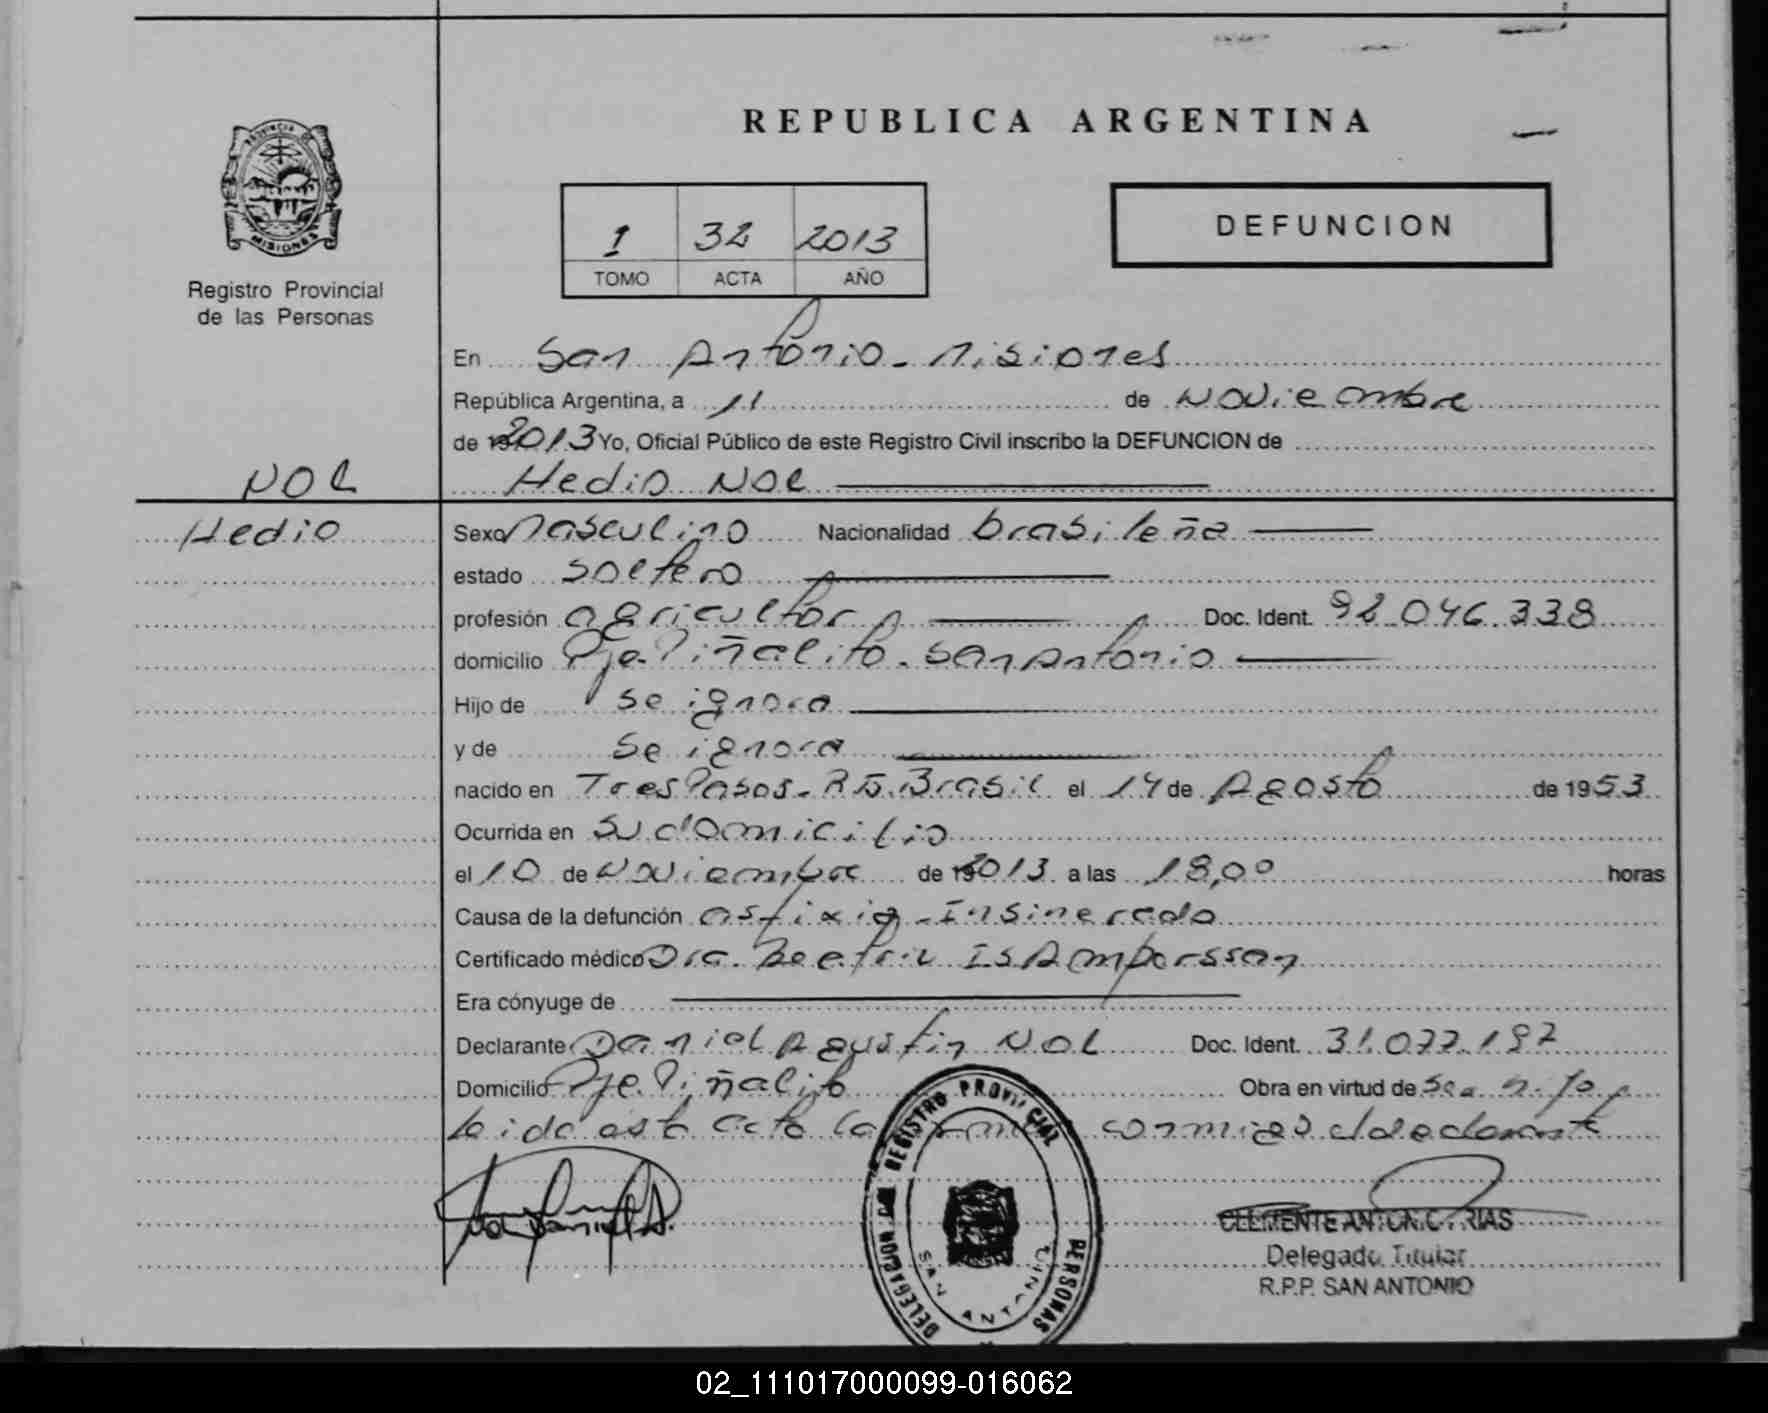 REPUBLICA ARGENTINA
PROVINCIA DE
MISIONES
Registro Provincial
de las Personas
DEFUNCION
1 32 2013
TOMO ACTA AÑO
En San Antonio - Misiones
República Argentina, a 11 de Noviembre
de 2013 Yo, Oficial Público de este Registro Civil inscribo la DEFUNCION de
NOL
Hedio NOL
Hedio
Sexo Masculino Nacionalidad brasileña
estado soltero
profesión agricultor Doc. Ident. 92.046.338
domicilio Pje. Piñalito - San Antonio
Hijo de se ignora
y de se ignora
nacido en Tres Pasos - RS. Brasil el 14 de Agosto de 1953
Ocurrida en su domicilio
el 10 de Noviembre de 2013 a las 18,00 horas
Causa de la defunción asfixia - Insinerado
Certificado médico Dra. Beatriz
Era cónyuge de
Declarante Daniel Agustin NOL Doc. Ident. 31.077.197
Domicilio Pje. Piñalito Obra en virtud de
Leida esta acta la conmigo el declarante
Nol Daniel A.
DELEGACION DEL REGISTRO PROVINCIAL PERSONAS
SAN ANTONIO
CLEMENTE ANTONIO FRIAS
Delegado Titular
R.P.P. SAN ANTONIO
02_111017000099-016062